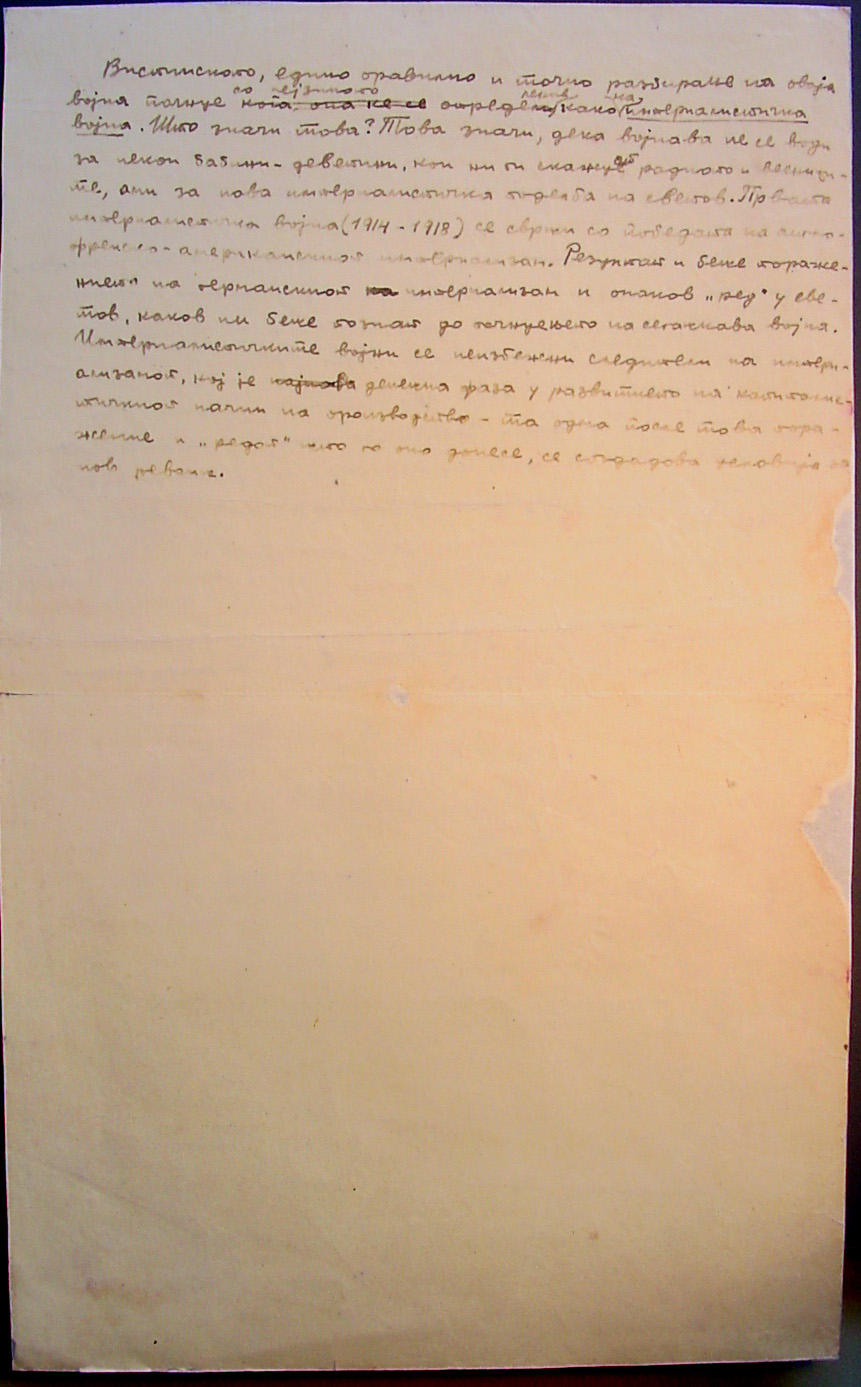 Вистинското, едино правилно и точно разбирање на оваја
со нејзиното ление на
војна почнује кога она ќе се определи како империалистичка
војна. Што значи това? Това значи, дека војнава не се води
за некои бабини-деветини, кои ни ги скажује радиото и весници-
те, ами за нова империалистичка поделба на светов. Првата
империалистичка војна (1914-1918) се сврши со победата на англо-
френско-американскиот империализам. Резултат и беше пораже-
нието на германскиот на империализам и онаков „ред“ у све-
тов, каков ни беше познат до почнујењето на сегачкава војна.
Империалистичките војни се неизбежни следители на импери-
ализамот, кој је најнова денешна фаза у развитието на капиталис-
тичкиот начин на производство - та одма после това пора-
жение и „редот“ што го оно донесе, се создадова условија за
нов реванш.